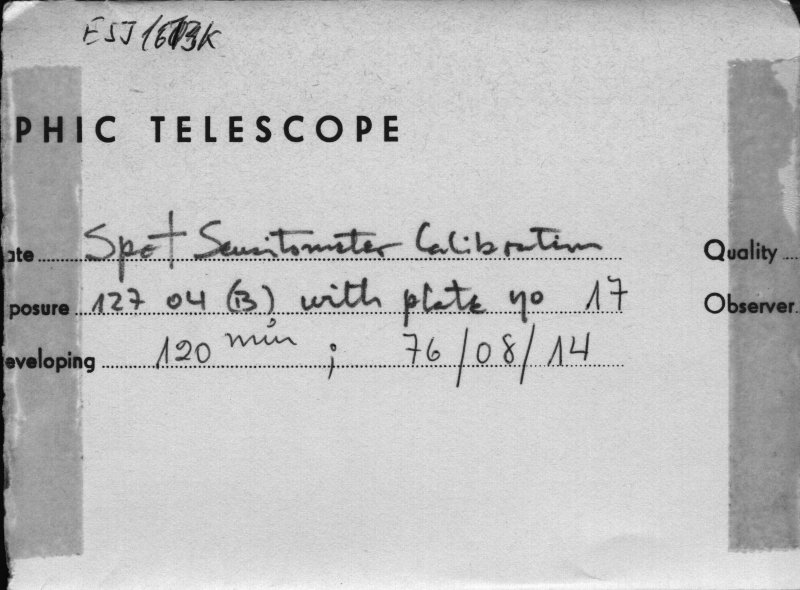 ESJ
PHIC TELESCOPE
ate Spot Sensitometer Calibration
posure 127 04 (B) with plate no 17
eveloping 120 min ; 76/08/14
Quality
Observer